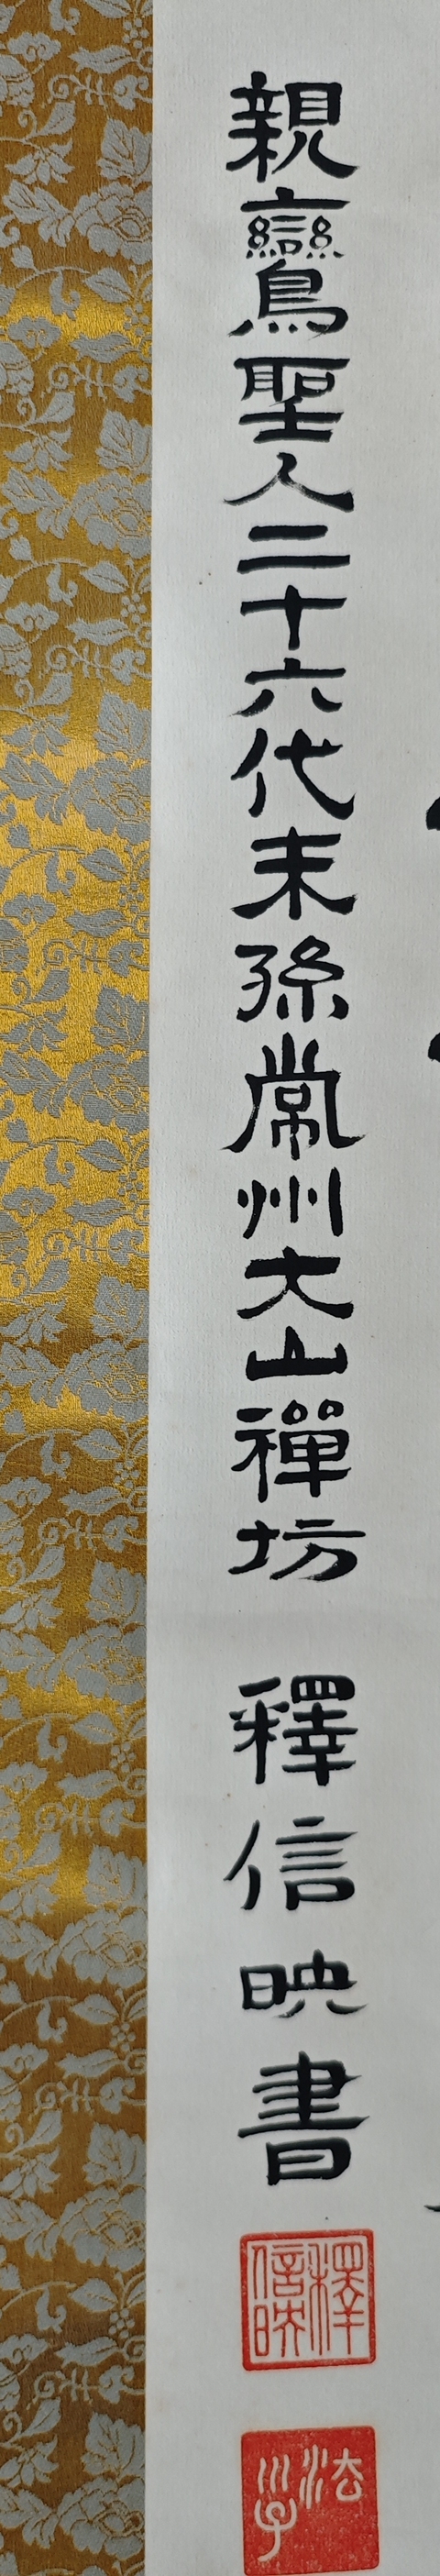 親鸞聖人二十六代末孫常州大山禪坊 釋信映書
釋信映